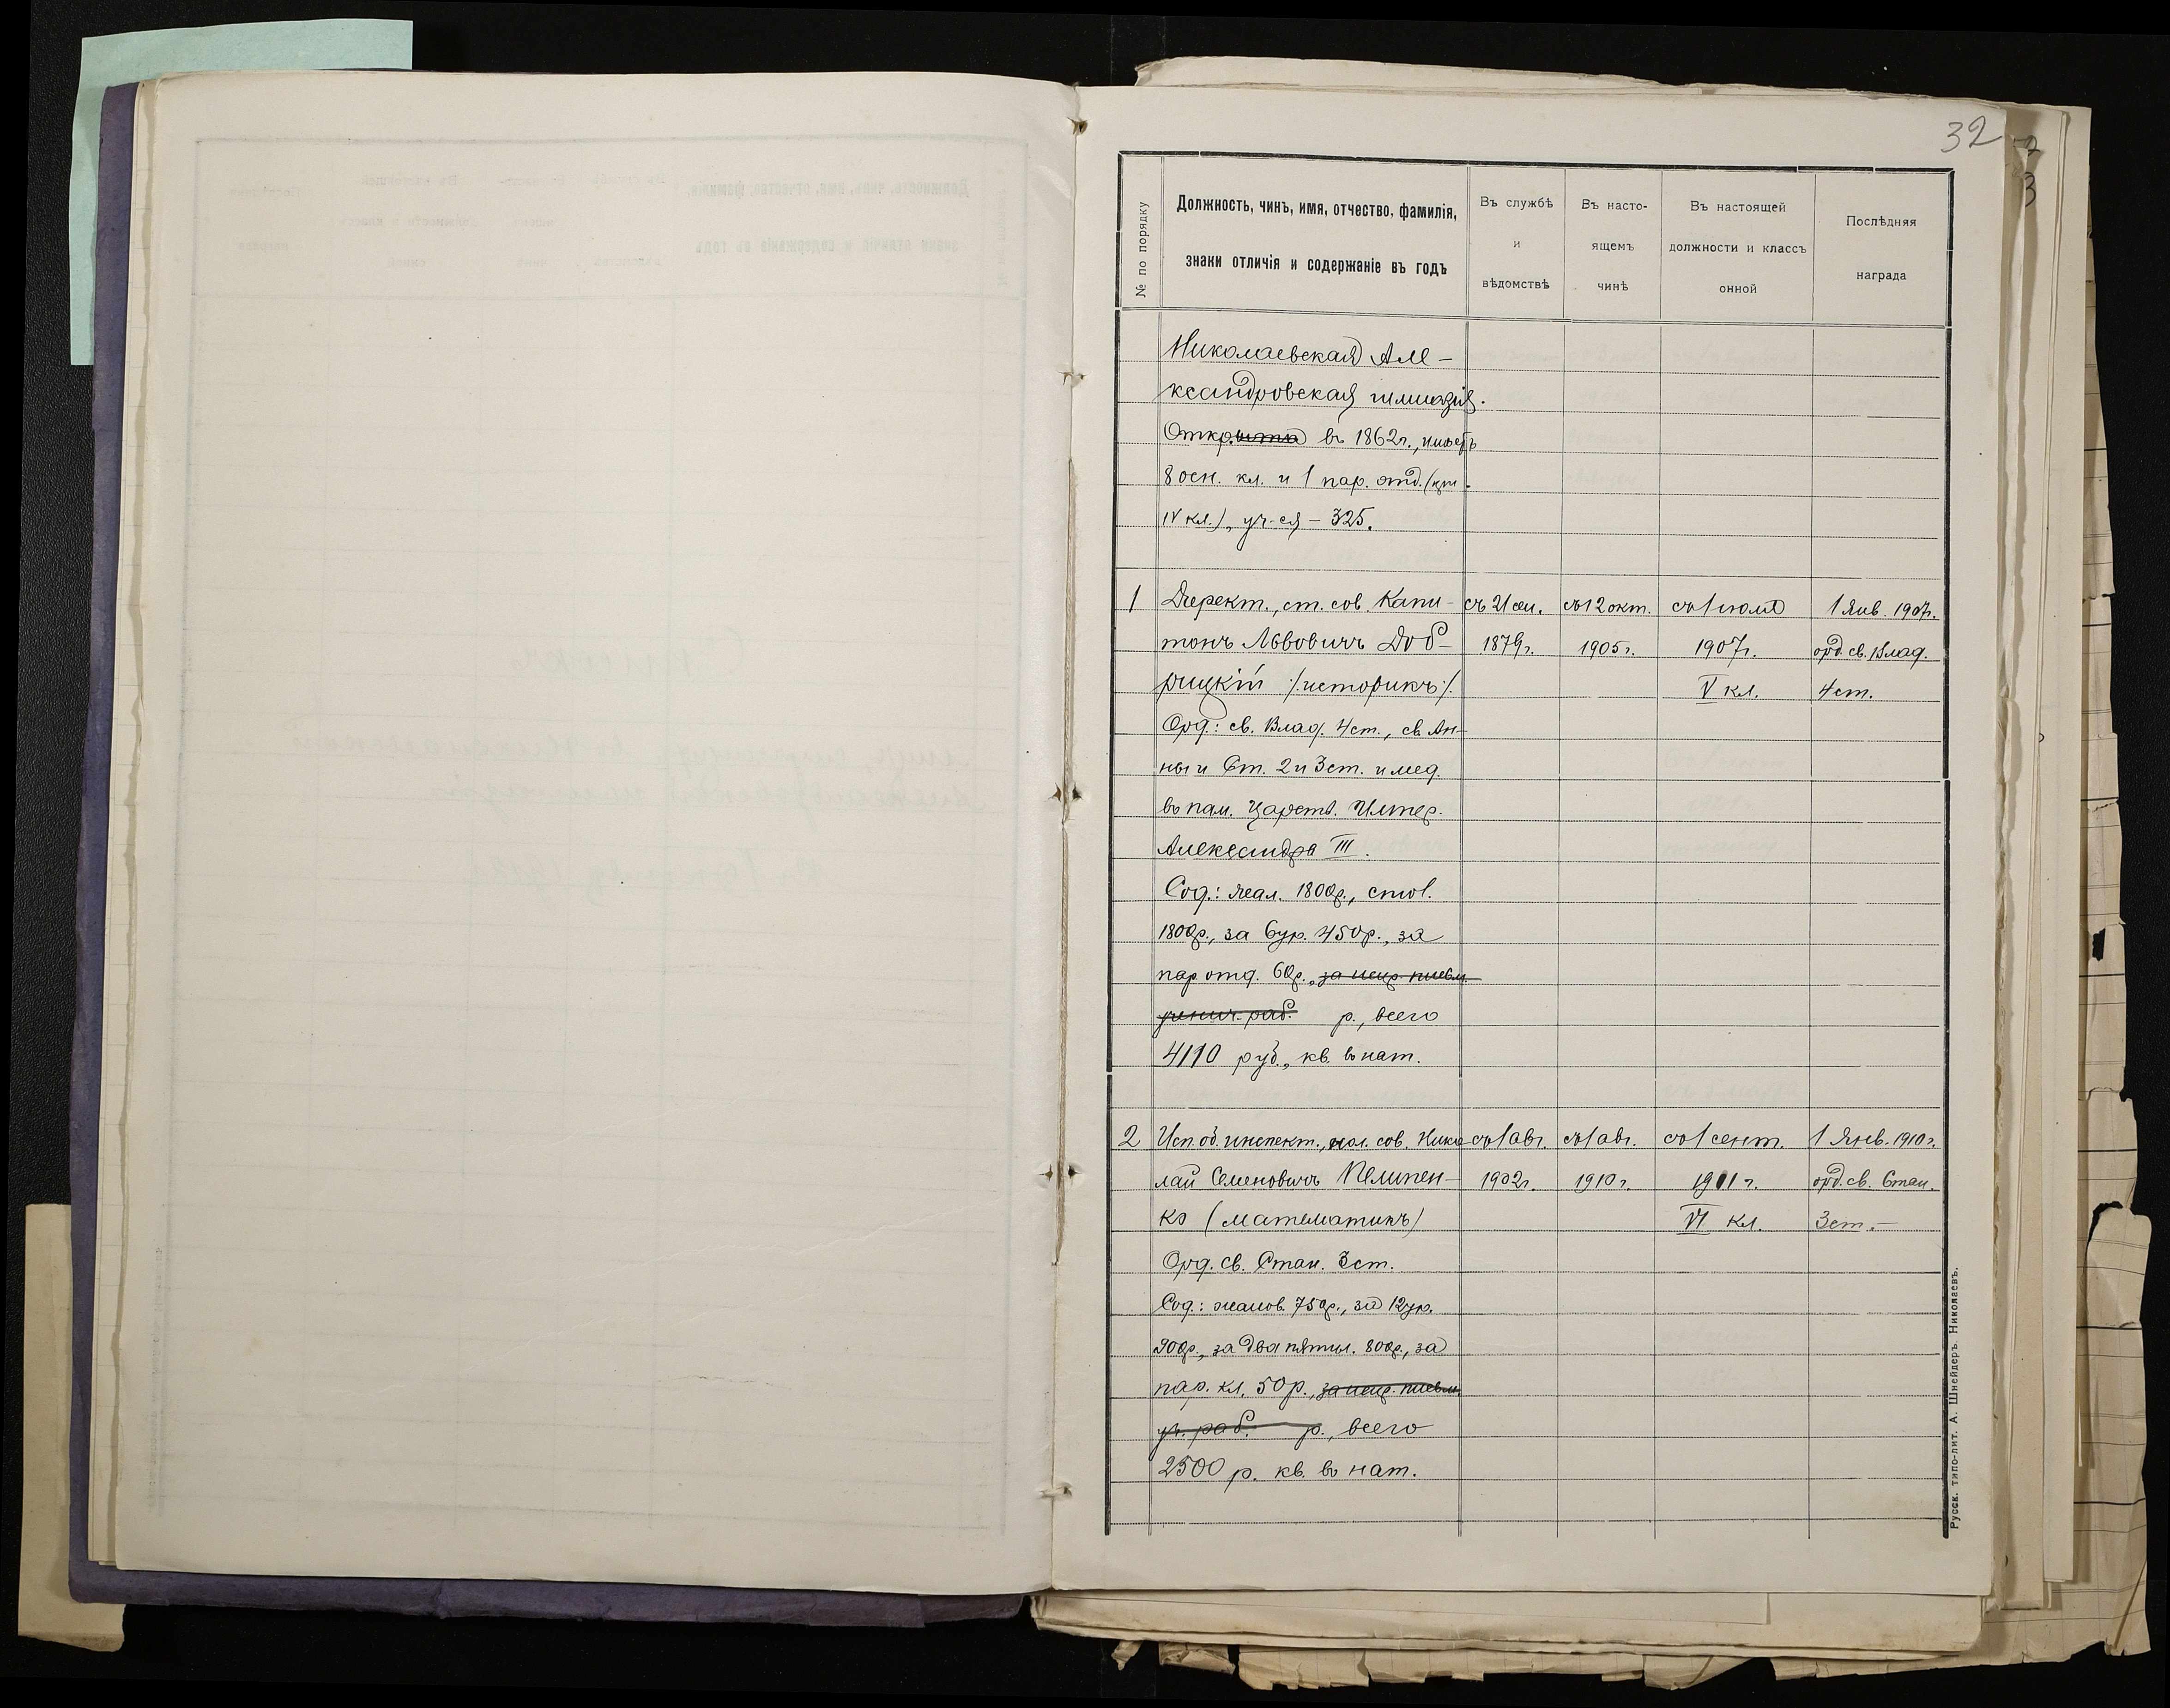 32
№ по порядку
Должность, чинъ, имя, отчество, фамилія,
знаки отличія и содержаніе въ годъ
Въ службѣ
и
вѣдомствѣ
Въ насто-
ящемъ
чинѣ
Въ настоящей
должности и классъ
онной
Послѣдняя
награда
Николаевская Але-
ксандровская гимназія.
Открыта въ 1862г., имѣетъ
8 осн. кл. и 1 пар. отд. (при
IV кл.), уч-ся – 325.
1 Директ., ст. сов. Капи- съ 21 сен. съ 12 окт. съ 1 июля 1 Янв. 1907г.
тонъ Львовичъ Доб- 1879г. 1905г. 1907г. орд. св. Влад.
рицкій /историкъ/. V кл. 4 ст.
Орд.: св. Влад. 4 ст., св. Ан-
ны и Ст. 2 и 3 ст. и мед.
въ пам. Царств. Импер.
Александра III.
Сод.: жал. 1800р., стол.
1800р., за 6 ур. 450р., за
пар. отд. 60р., за испр. письм.
ученич. раб. р., всего
4110 руб., кв. въ нат.
2 Исп. об. инспект., кол. сов. Нико- съ 1 авг. съ 1 авг. съ 1 сент. 1 Янв. 1910г.
лай Семеновичъ Пелипен- 1902г. 1910г. 1911г. орд. св. Стан.
ко (математикъ) VI кл. 3 ст. –
Орд. св. Стан. 3 ст.
Сод.: жалов. 750р., за 12 ур.
900р., за два пятил. 800р., за
пар. кл. 50р., за испр. письм.
уч. раб. р., всего
2500 р. кв. въ нат.
Русск. типо-лит. А. Шнейдеръ. Николаевъ.